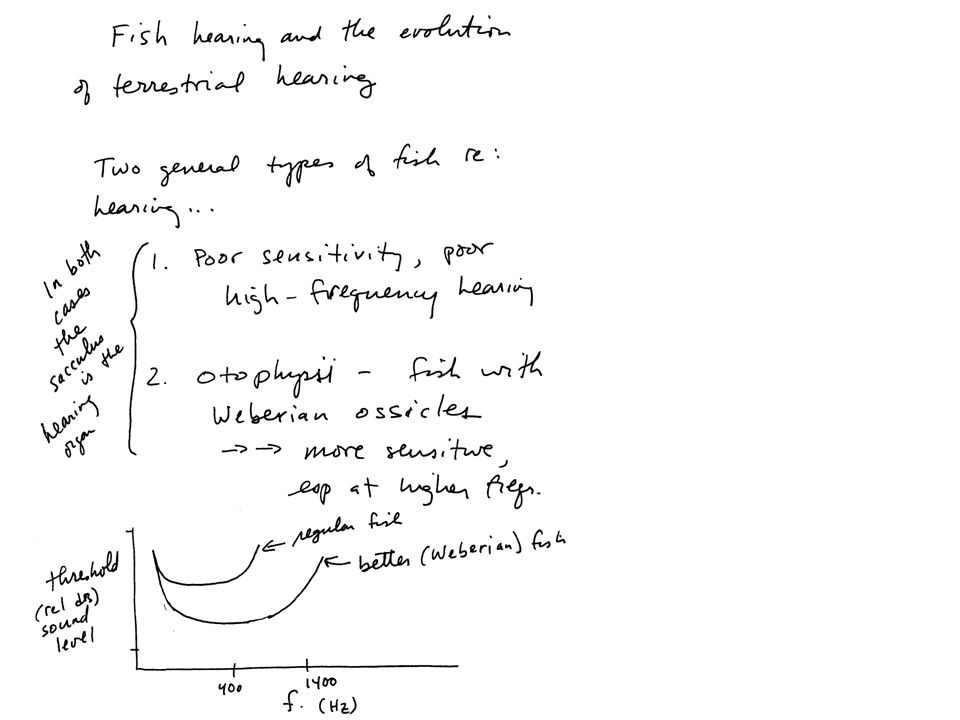 Fish hearing and the evolution
of terrestrial hearing
Two general types of fish re:
hearing...
In both
cases
the
sacculus
is the
hearing
organ
1. Poor sensitivity, poor
high-frequency hearing
2. Otophysii - fish with
Weberian ossicles
→→ more sensitive,
esp at higher freqs.
← regular fish
← better (Weberian) fish
threshold
(rel dB)
sound
level
400
1400
f. (Hz)